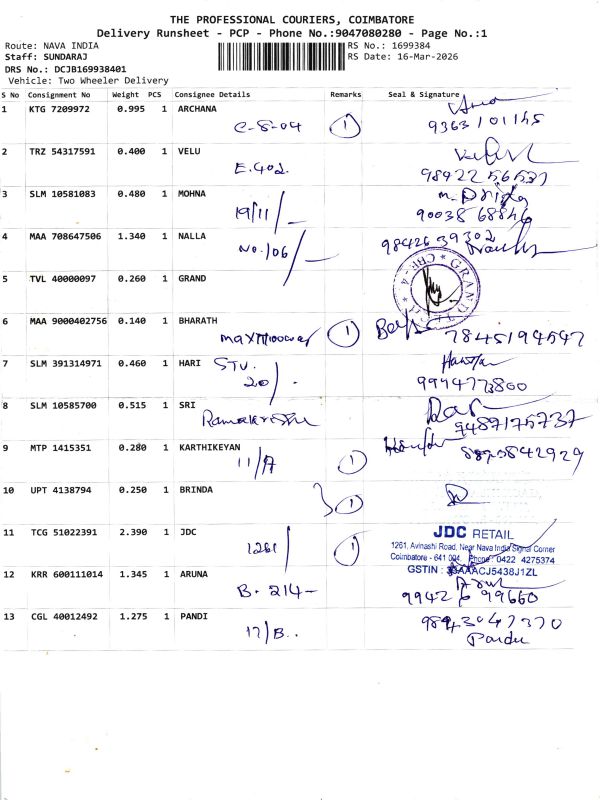 THE PROFESSIONAL COURIERS, COIMBATORE
Delivery Runsheet - PCP - Phone No.:9047080280 - Page No.:1
Route: NAVA INDIA
RS No.: 1699384
Staff: SUNDARAJ
RS Date: 16-Mar-2026
DRS No.: DCJB169938401
Vehicle: Two Wheeler Delivery
S No Consignment No Weight PCS Consignee Details Remarks Seal & Signature
1 KTG 7209972 0.995 1 ARCHANA
C-8-04 1 9363101145
2 TRZ 54317591 0.400 1 VELU
E.402
3 SLM 10581083 0.480 1 MOHNA
19/11/ 9003868846
4 MAA 708647506 1.340 1 NALLA
No.106/ 9842639302
5 TVL 40000097 0.260 1 GRAND
GRAND CBE-4
6 MAA 9000402756 0.140 1 BHARATH
1 7845194547
7 SLM 391314971 0.460 1 HARI
20/ 9994773800
8 SLM 10585700 0.515 1 SRI
9487175737
9 MTP 1415351 0.280 1 KARTHIKEYAN
11/A 1 8825842929
10 UPT 4138794 0.250 1 BRINDA
1
11 TCG 51022391 2.390 1 JDC
1261 1
JDC RETAIL
1261, Avinashi Road, Near Nava India Signal Corner
Coimbatore - 641 004. Phone: 0422 4275374
GSTIN : 33AAACJ5438J1ZL
12 KRR 600111014 1.345 1 ARUNA
B. 214- 99426 99660
13 CGL 40012492 1.275 1 PANDI
17/B.. 9843047370